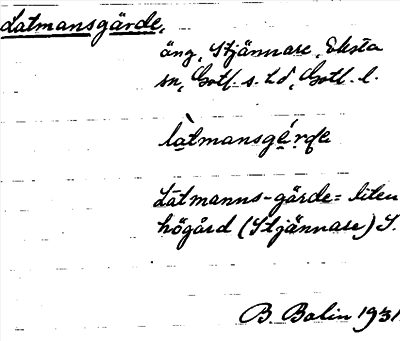 Latmansgärde,
äng, Stjännare, Eksta
sn, Gotl. s. hd, Gotl. l.
làtmansgérde
Látmanns-gärde = liten
högård (Stjännare) S.
B. Bolin 1931